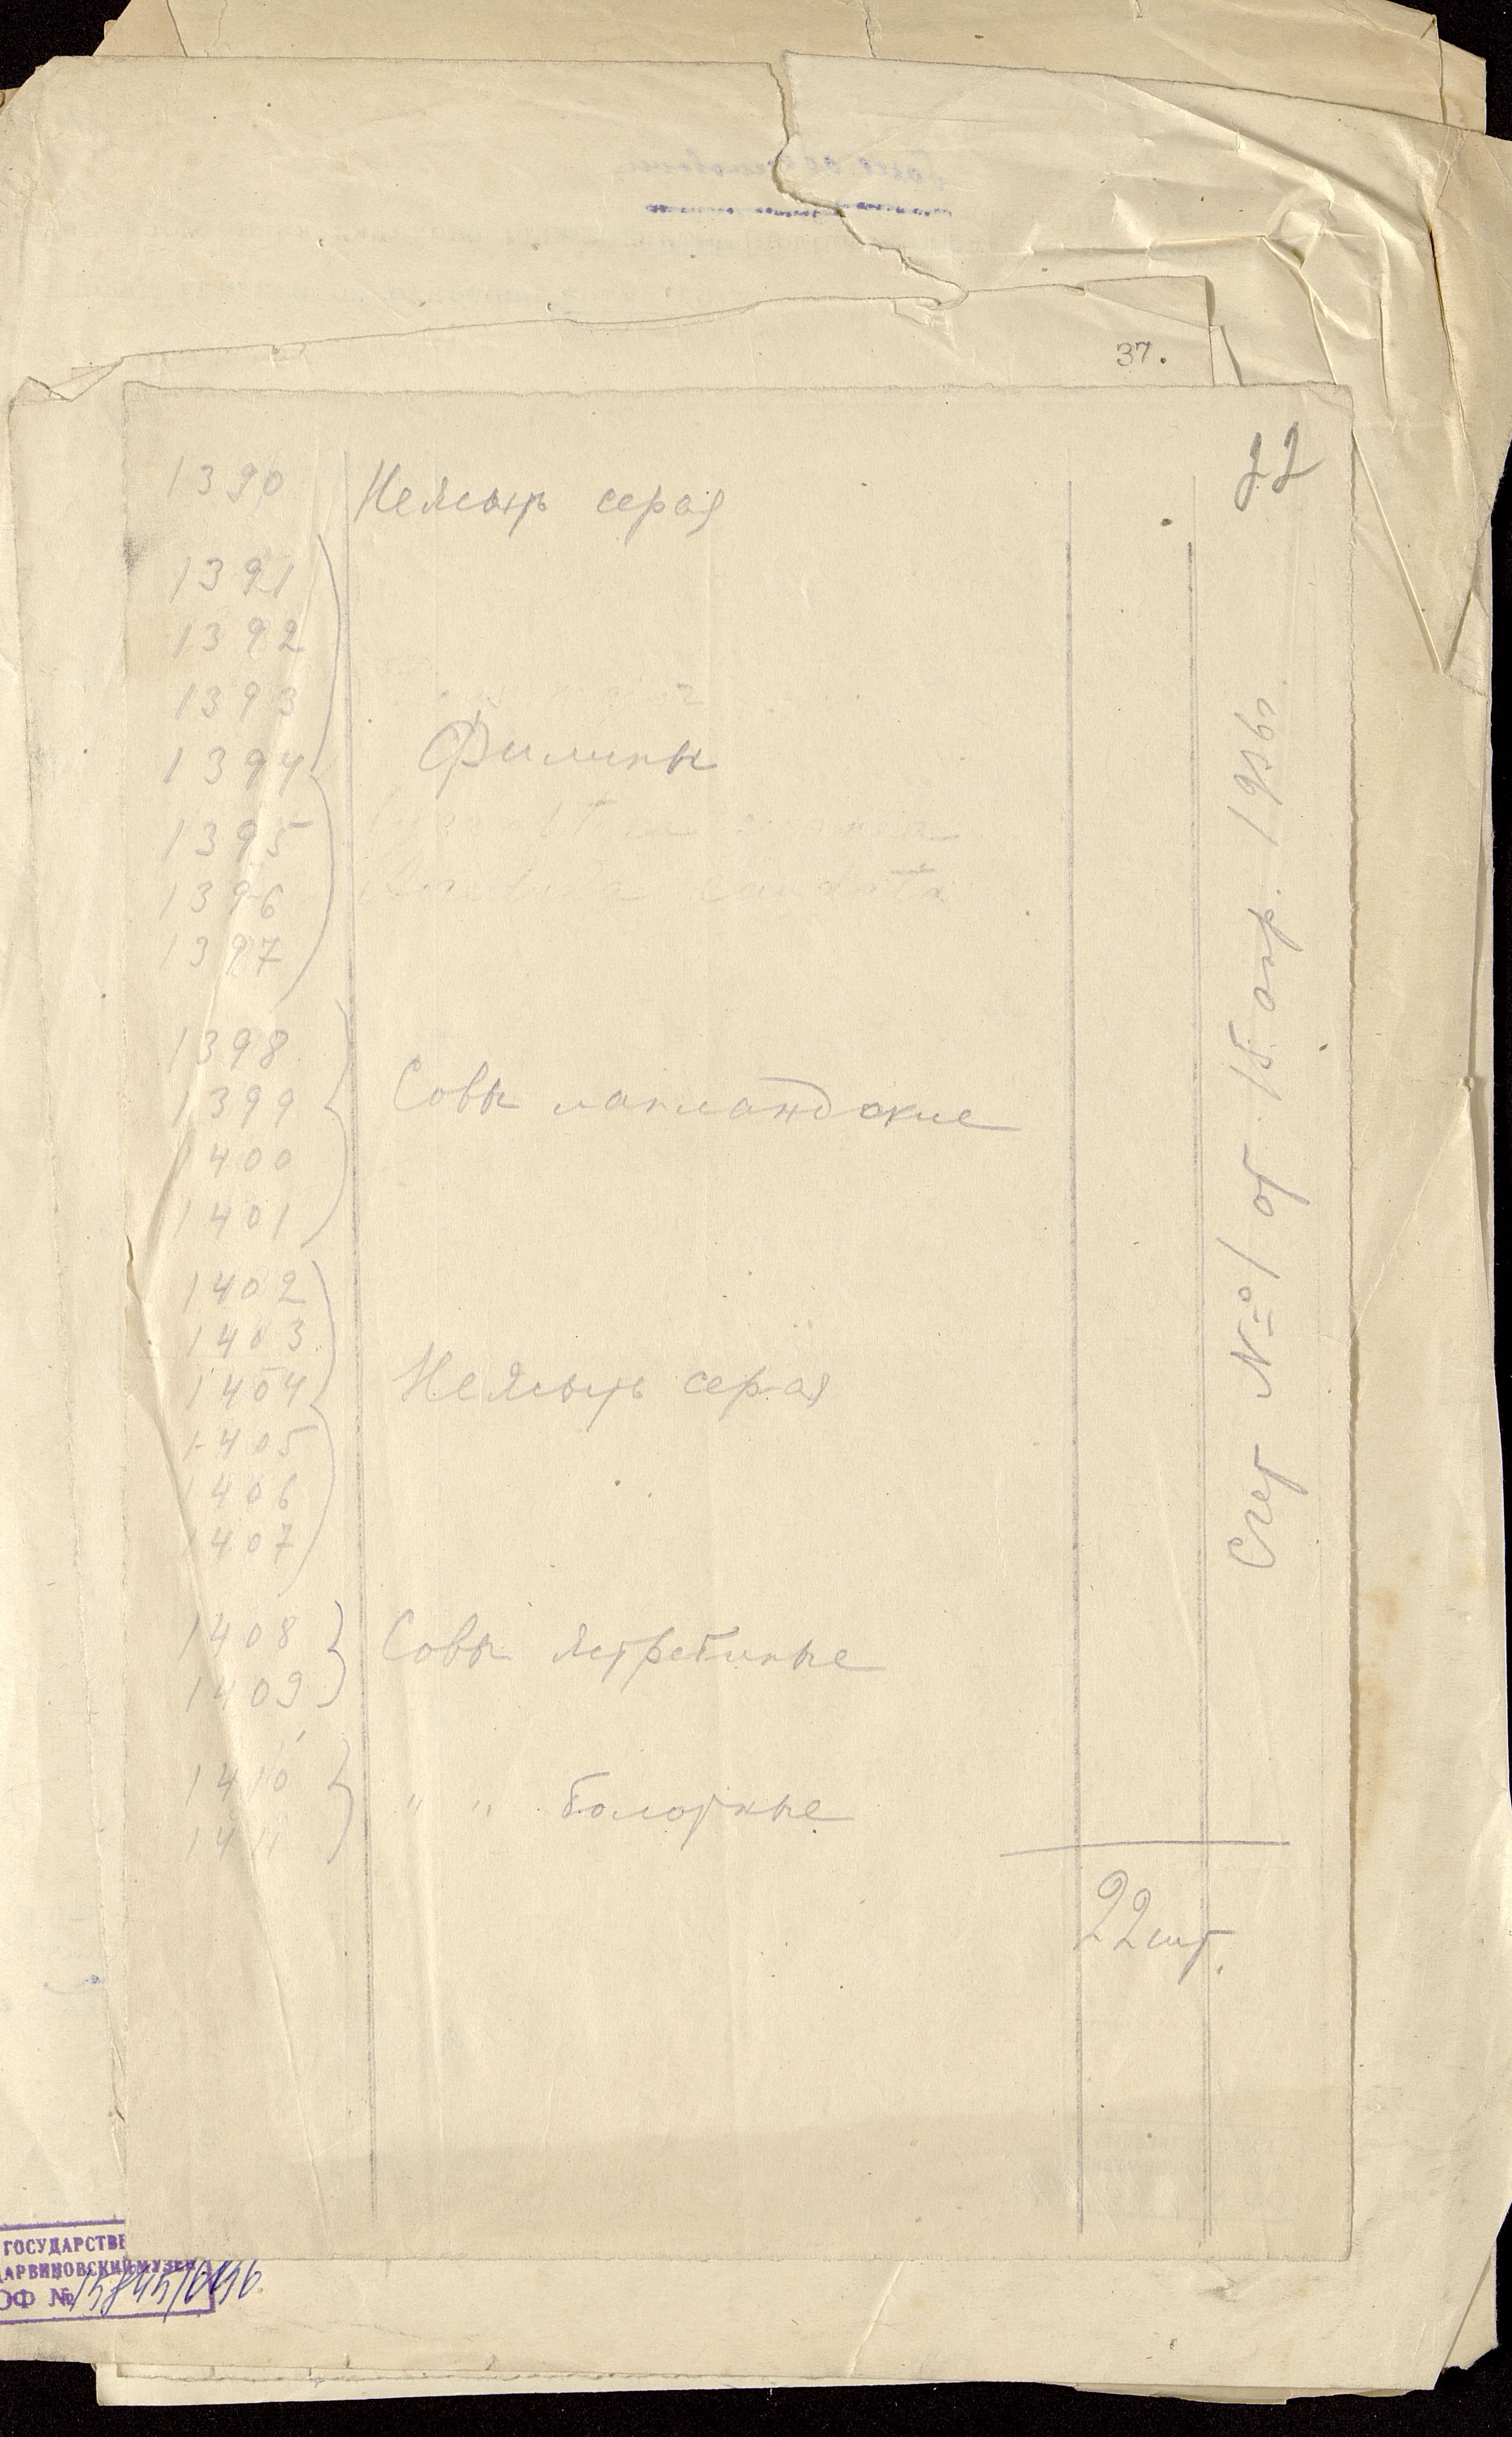 37.
22
1390 Неясыть серая
1391
1392
1393
1394 Филины
1395
1396
1397
1398
1399 Совы лапландские
1400
1401
1402
1403
1404 Неясыть серая
1405
1406
1407
1408 Совы ястребиные
1409
1410 " " болотные
1411
22 шт.
Счет № 1 от 15 апр. 1936г.
ГОСУДАРСТВЕ
ДАРВИНОВСКИЙ МУЗЕЙ
ОФ №